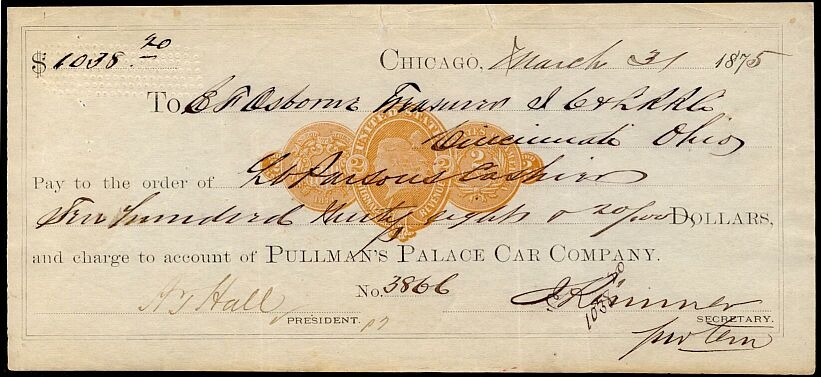 $1038.20 CHICAGO, March 31 1875
To E F Osborn Treasurer I C & L RR Co
Cincinnati Ohio
Pay to the order of L Parsons Cashier
Ten hundred thirty eight & 20/100 DOLLARS,
and charge to account of PULLMAN'S PALACE CAR COMPANY.
No. 3866
Hall
PRESIDENT.
SECRETARY.
pro tem
1038 20
UNITED STATES
2 2 2 2